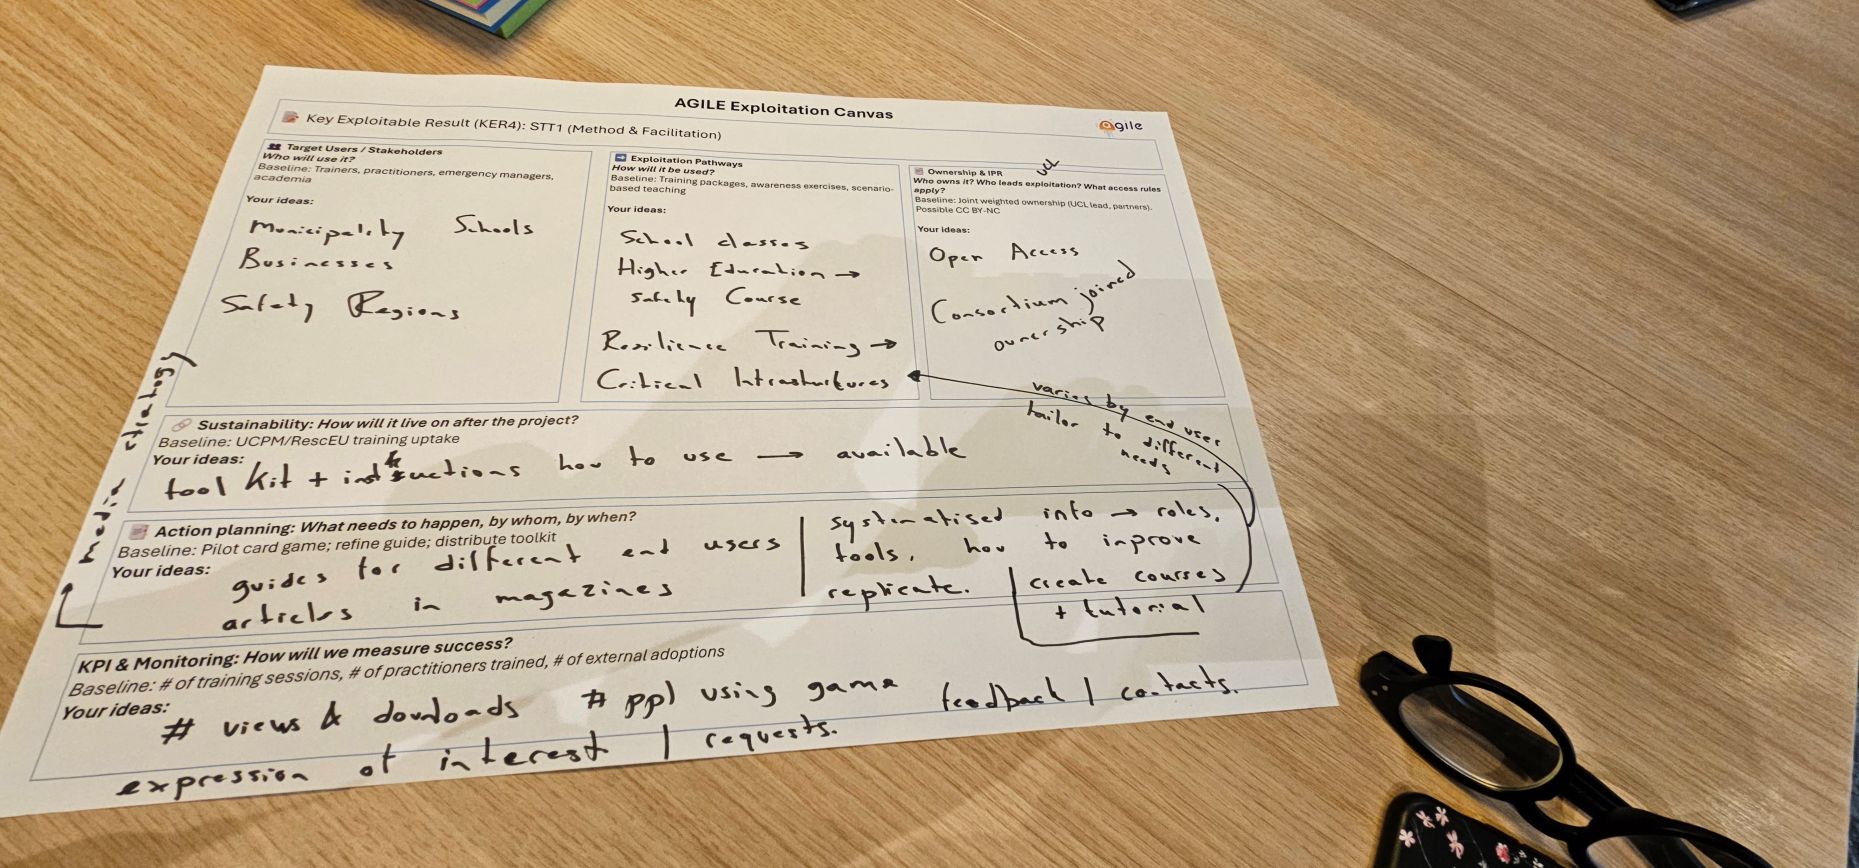 AGILE Exploitation Canvas
Key Exploitable Result (KER4): STT1 (Method & Facilitation)
agile
Target Users / Stakeholders
Who will use it?
Baseline: Trainers, practitioners, emergency managers,
academia
Your ideas:
Municipality Schools
Businesses
Safety Regions
Exploitation Pathways
How will it be used?
Baseline: Training packages, awareness exercises, scenario-
based teaching
Your ideas:
School classes
Higher Education →
Safety Course
Resilience Training →
Critical Infrastructures
UCL
Ownership & IPR
Who owns it? Who leads exploitation? What access rules
apply?
Baseline: Joint weighted ownership (UCL lead, partners).
Possible CC BY-NC
Your ideas:
Open Access
Consortium joined
ownership
varies by end user
tailor to different
needs
Sustainability: How will it live on after the project?
Baseline: UCPM/RescEU training uptake
Your ideas:
tool kit + instructions how to use → available
media strategy
Action planning: What needs to happen, by whom, by when?
Baseline: Pilot card game; refine guide; distribute toolkit
Your ideas:
guides for different end users
articles in magazines
systematised info → roles,
tools, how to improve
replicate.
create courses
+ tutorial
KPI & Monitoring: How will we measure success?
Baseline: # of training sessions, # of practitioners trained, # of external adoptions
Your ideas:
# views & downloads # ppl using game feedback / contacts.
expression of interest / requests.